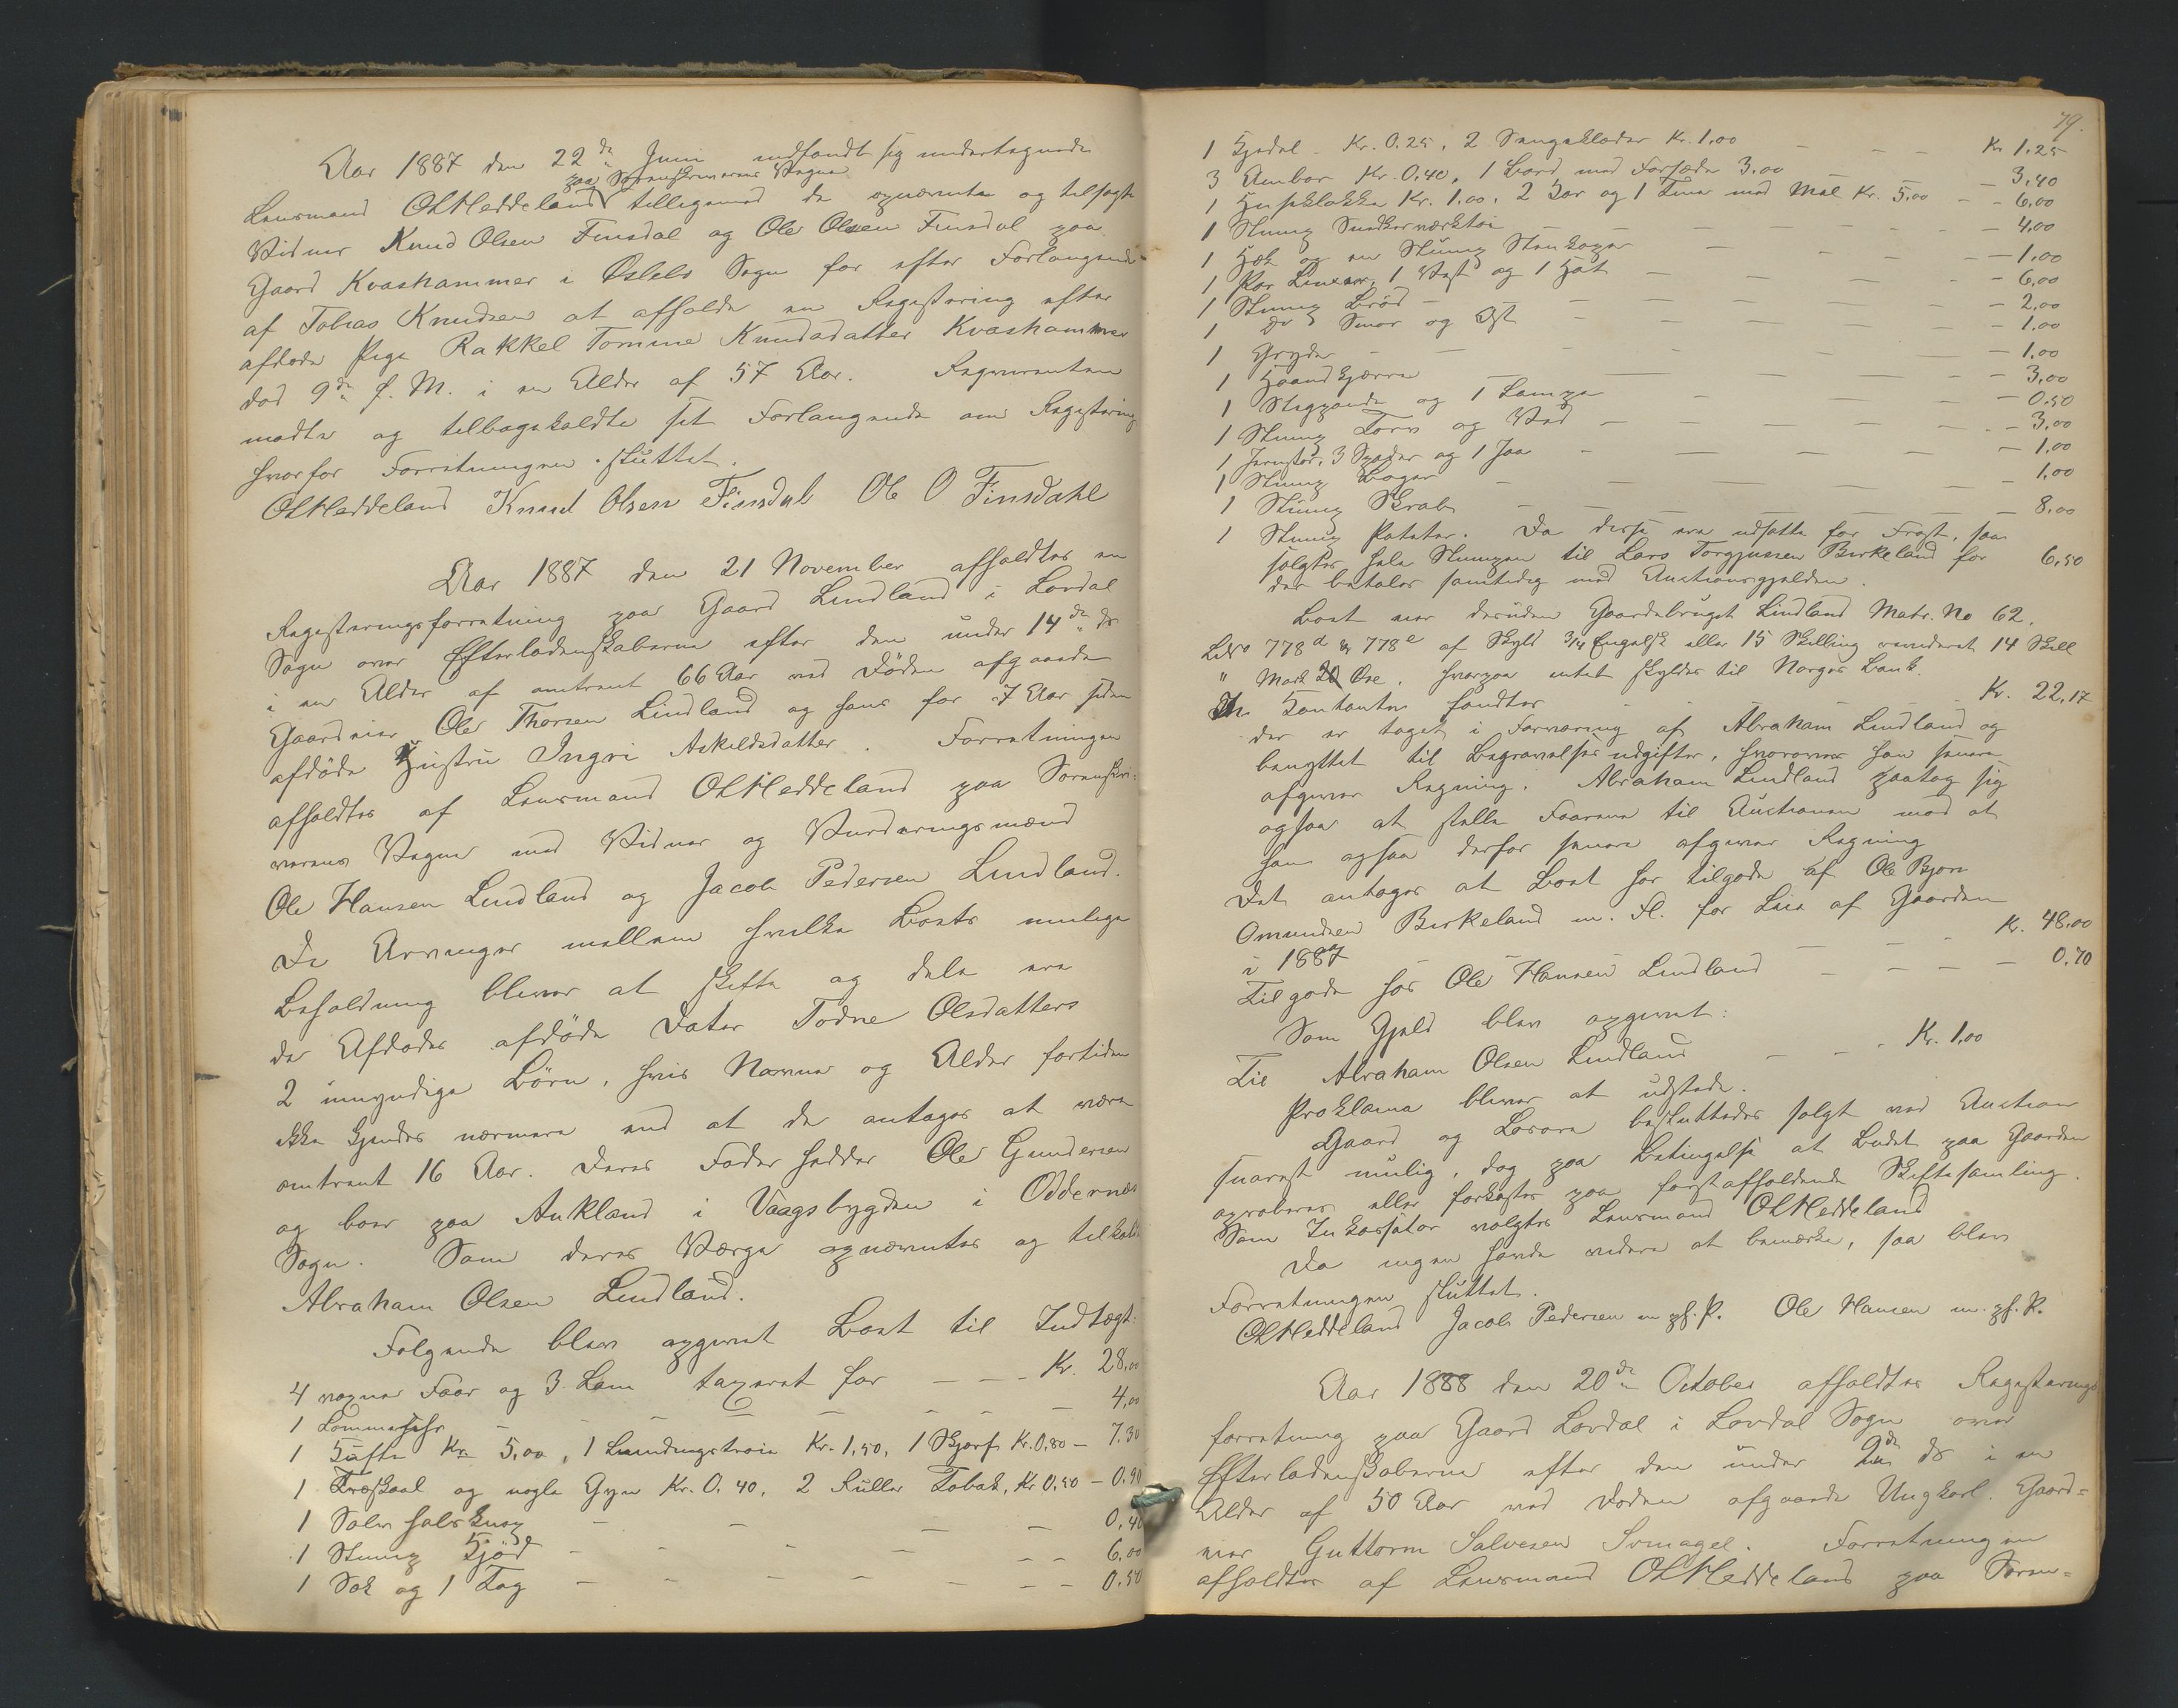 Aar 1887 den 22de Juni indfandt sig undertegnede
Lensmand OLHeddeland paa Sorenskriverens Vegne tilligemed de opnævnte og tilsagte
Vidner Knud Olsen Finsdal og Ole Olsen Finsdal paa
Gaard Kvashammer i Øslebø Sogn for efter Forlangende
af Tobias Knudsen at afholde en Registrering efter
afdøde Pige Rakkel Tomine Knudsdatter Kvashammer
død 9de d. M. i en Alder af 57 Aar. Reqvirenten
mødte og tilbagekaldte sit Forlangende om Registrering
hvorfor Forretningen sluttet.
OLHeddeland Knud Olsen Finsdal Ole O Finsdahl
Aar 1887 den 21 November afholdtes en
Registreringsforretning paa Gaard Lindland i Løvdal
Sogn over Efterladenskaberne efter den under 14de ds
i en Alder af omtrent 66 Aar ved Døden afgaaede
Gaardeier Ole Thorsen Lindland og hans for 7 Aar siden
afdøde Hustru Ingri Askildsdatter. Forretningen
afholdtes af Lensmand OLHeddeland paa Sorenskri-
verens Vegne med Vidner og Vurderingsmænd
Ole Hansen Lindland og Jacob Pedersen Lindland.
De Arvinger mellem hvilke Boets mulige
Beholdning bliver at skifte og dele ere
de Afdødes afdøde Datter Todne Olsdatters
2 umyndige Børn, hvis Navne og Alder fortiden
ikke kjendes nærmere end at de antages at være
omtrent 16 Aar. Deres Fader hedder Ole Gundersen
og boer paa Aukland i Vaagsbygden i Oddernes
Sogn. Som deres Værge opnævntes og tilkaldt
Abraham Olsen Lindland.
Følgende blev opgivet Boet til Indtægt:
4 voxne Faar og 3 Lam taxeret for - - - Kr. 28,00
1 Lommeuhr - - - 4,00
1 Kufte Kr 5,00, 1 Lundingstrøie Kr. 1,50, 1 Skjærf Kr. 0,80 - 7.30
1 Træskaal og nogle Gryn Kr. 0.40. 2 Ruller Tobak, Kr 0.50 - 0.90
1 Sølv halsknap - - - - 0,40
1 Slump Kjød - - - - 6,00
1 Sæk og 1 Tog - - - - 0.50
79.
1 Kjedel. Kr. 0.25, 2 Sengeklæder Kr. 1,00 - - - Kr 1.25
3 Ambar Kr. 0.40, 1 Bord med Forsæde 3.00 - 3,40
1 Husklokke Kr. 1.00. 2 Kar og 1 Tine med Mel Kr. 5,00 - - 6,00
1 Slump Snedkerværktøi - - - 4,00
1 Hæk og en Slump Stenkoper - - - 1,00
1 Par Buxer, 1 Vest og 1 Hat - - - 6,00
1 Slump Brød - - - 2,00
1 Do Smør og Ost - - - 1,00
1 Gryde - - - 1,00
1 Haandkjærre - - - 3,00
1 Stegpande og 1 Lampe - - - 0.50
1 Slump Torv og Ved - - - 3,00
1 Jernstør, 3 Spader og 1 Ljaa - - - 1,00
1 Slump Bøger - - - 1,00
1 Slump Skrab - - - 8,00
1 Slump Poteter. Da disse ere udsatte for Frost, saa
solgtes hele Slumpen til Lars Torgjussen Birkeland for 6,50
der betales samtidig med Auctionsgjelden.
Boet eier desuden Gaardebruget Lindland Matr. No 62.
LNo 778d & 778e af Skyld 3/4 Engelsk eller 15 Skilling revideret 14 Skill
" Mark 20 Øre, hvorpaa intet skyldes til Norges Bank.
In Kontanter fandtes - - Kr. 22,17
der er taget i Forvaring af Abraham Lindland og
benyttet til Begravelsesudgifter, hvorover han senere
afgiver Regning. Abraham Lindland paatog sig
ogsaa at stelle Faarene til Auctionen mod at
han ogsaa derfor senere afgiver Regning
Det antages at Boet har tilgode af Ole Bjorn
Omundsen Birkeland m. Fl. for Leie af Gaarden
i 1887 - - - Kr. 48,00
Tilgode hos Ole Hansen Lindland - - - 0.70
Som Gjeld blev opgivet:
Til Abraham Olsen Lindland - - - Kr. 1,00
Proklama bliver at udstede.
Gaard og Løsøre besluttedes solgt ved Auction
snarest mulig, dog paa Betingelse at Budet paa Gaarden
approberes eller forkastes paa førstafholdende Skiftesamling.
Som Inkassator valgtes Lensmand OLHeddeland
Da ingen havde videre at bemærke, saa blev
Forretningen sluttet.
OLHeddeland Jacob Pedersen m. p. P. Ole Hansen m. p. P.
Aar 1888 den 20de October afholdtes Registrerings
forretning paa Gaard Løvdal i Løvdal Sogn over
Efterladenskaberne efter den under 2den ds i en
Alder af 50 Aar ved Døden afgaaede Ungkarl. Gaard-
eier Guttorm Salvesen Homagel. Forretningen
afholdtes af Lensmand OLHeddeland paa Soren-